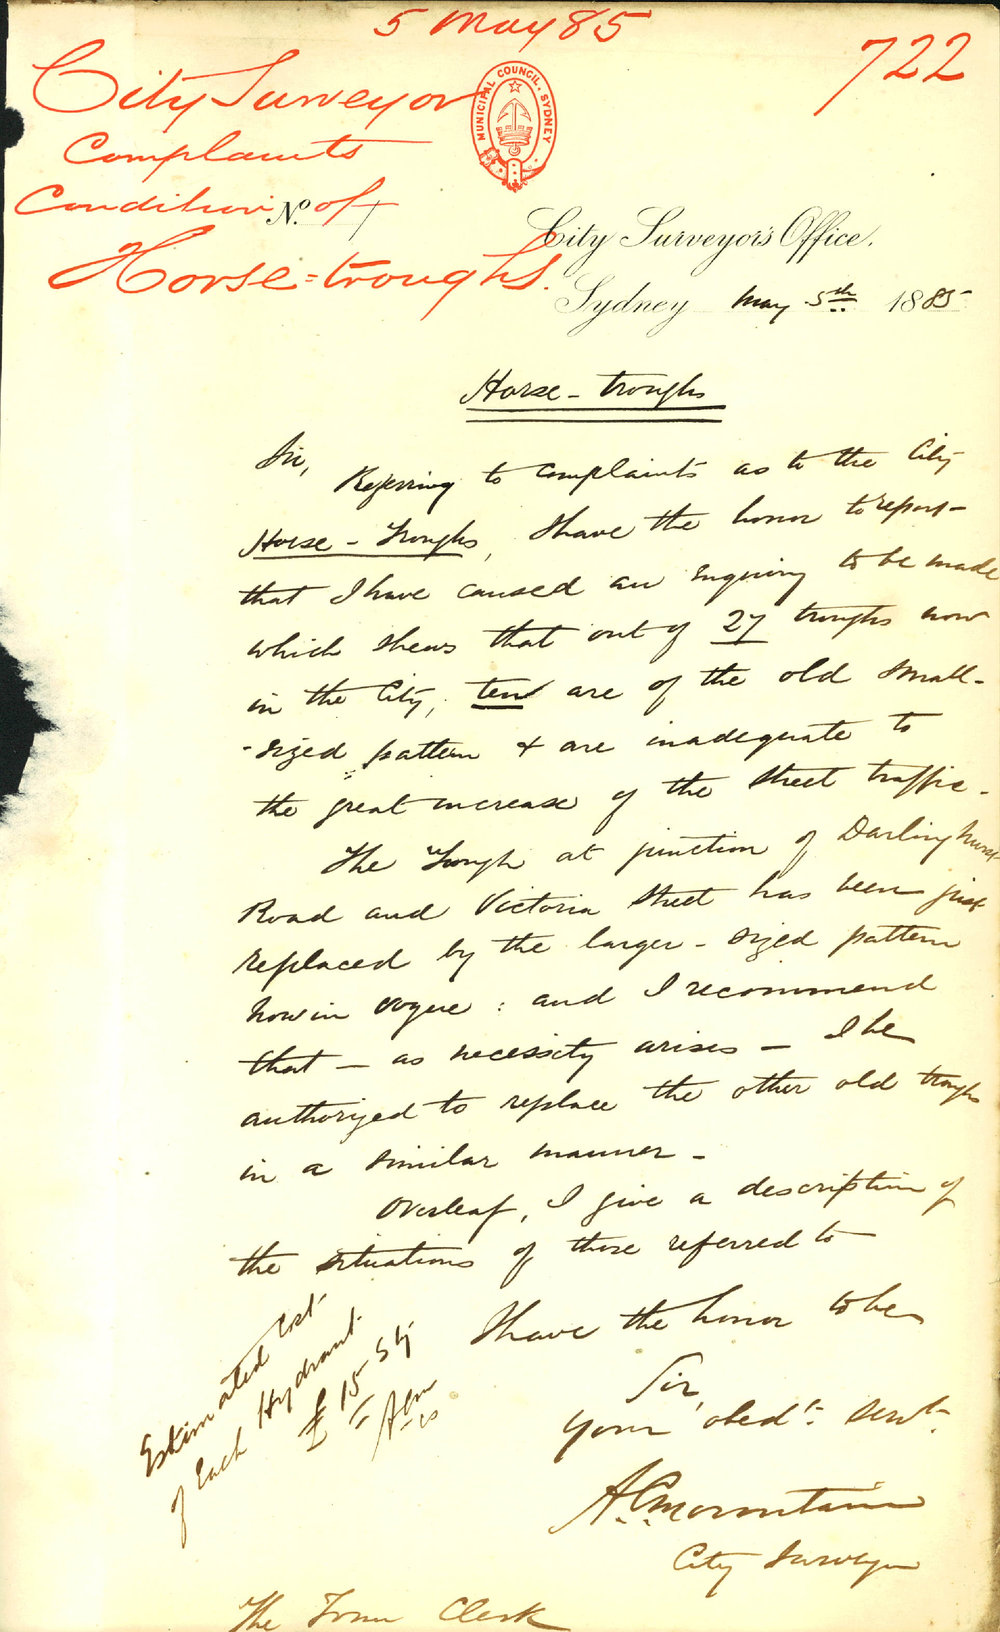 5 May 85
722
City Surveyor
Complaints
Condition of
Horse=troughs.
MUNICIPAL COUNCIL. SYDNEY
No.
City Surveyor's Office,
Sydney May 5th 1885
Horse - troughs
Sir,
Referring to complaints as to the City
Horse - Troughs, I have the honor to report
that I have caused an enquiry to be made
which shews that out of 27 troughs now
in the City, ten are of the old small-
-sized pattern & are inadequate to
the great increase of the street traffic.
The Trough at junction of Darlinghurst
Road and Victoria Street has been just
replaced by the larger-sized pattern
now in vogue : and I recommend
that - as necessity arises - I be
authorized to replace the other old troughs
in a similar manner -
Overleaf, I give a description of
the situations of those referred to
I have the honor to be
Sir,
Your obedt. Servt.
A.C. Mountain
City Surveyor
Estimated Cost
of Each Hydrant
£15 Stg
ACM
The Town Clerk